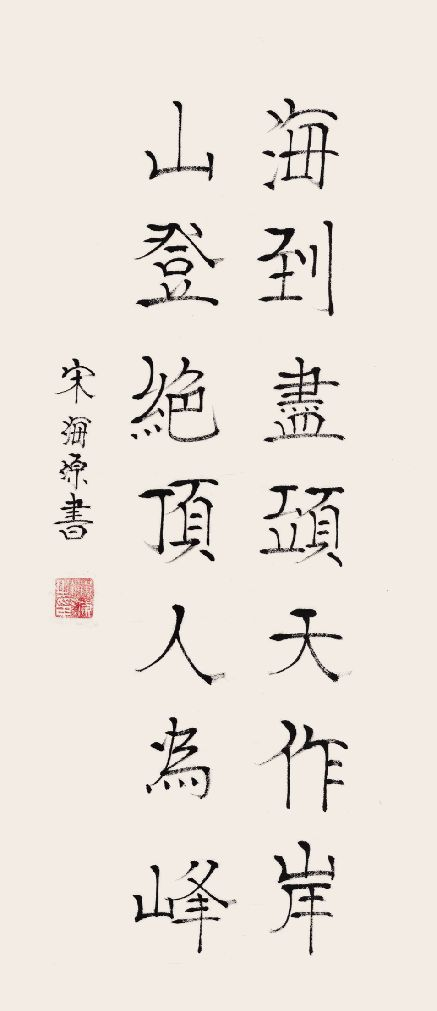 海到盡頭天作岸
山登絕頂人為峰
宋海源書